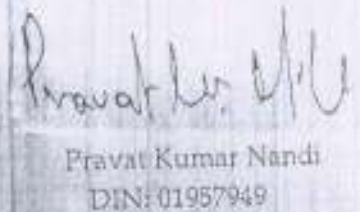 Pravat Kr.
Pravat Kumar Nandi
DIN: 01957949